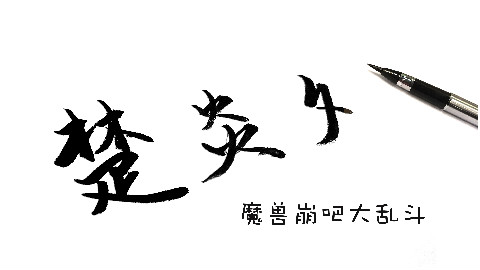 楚炎午
魔兽崩吧大乱斗